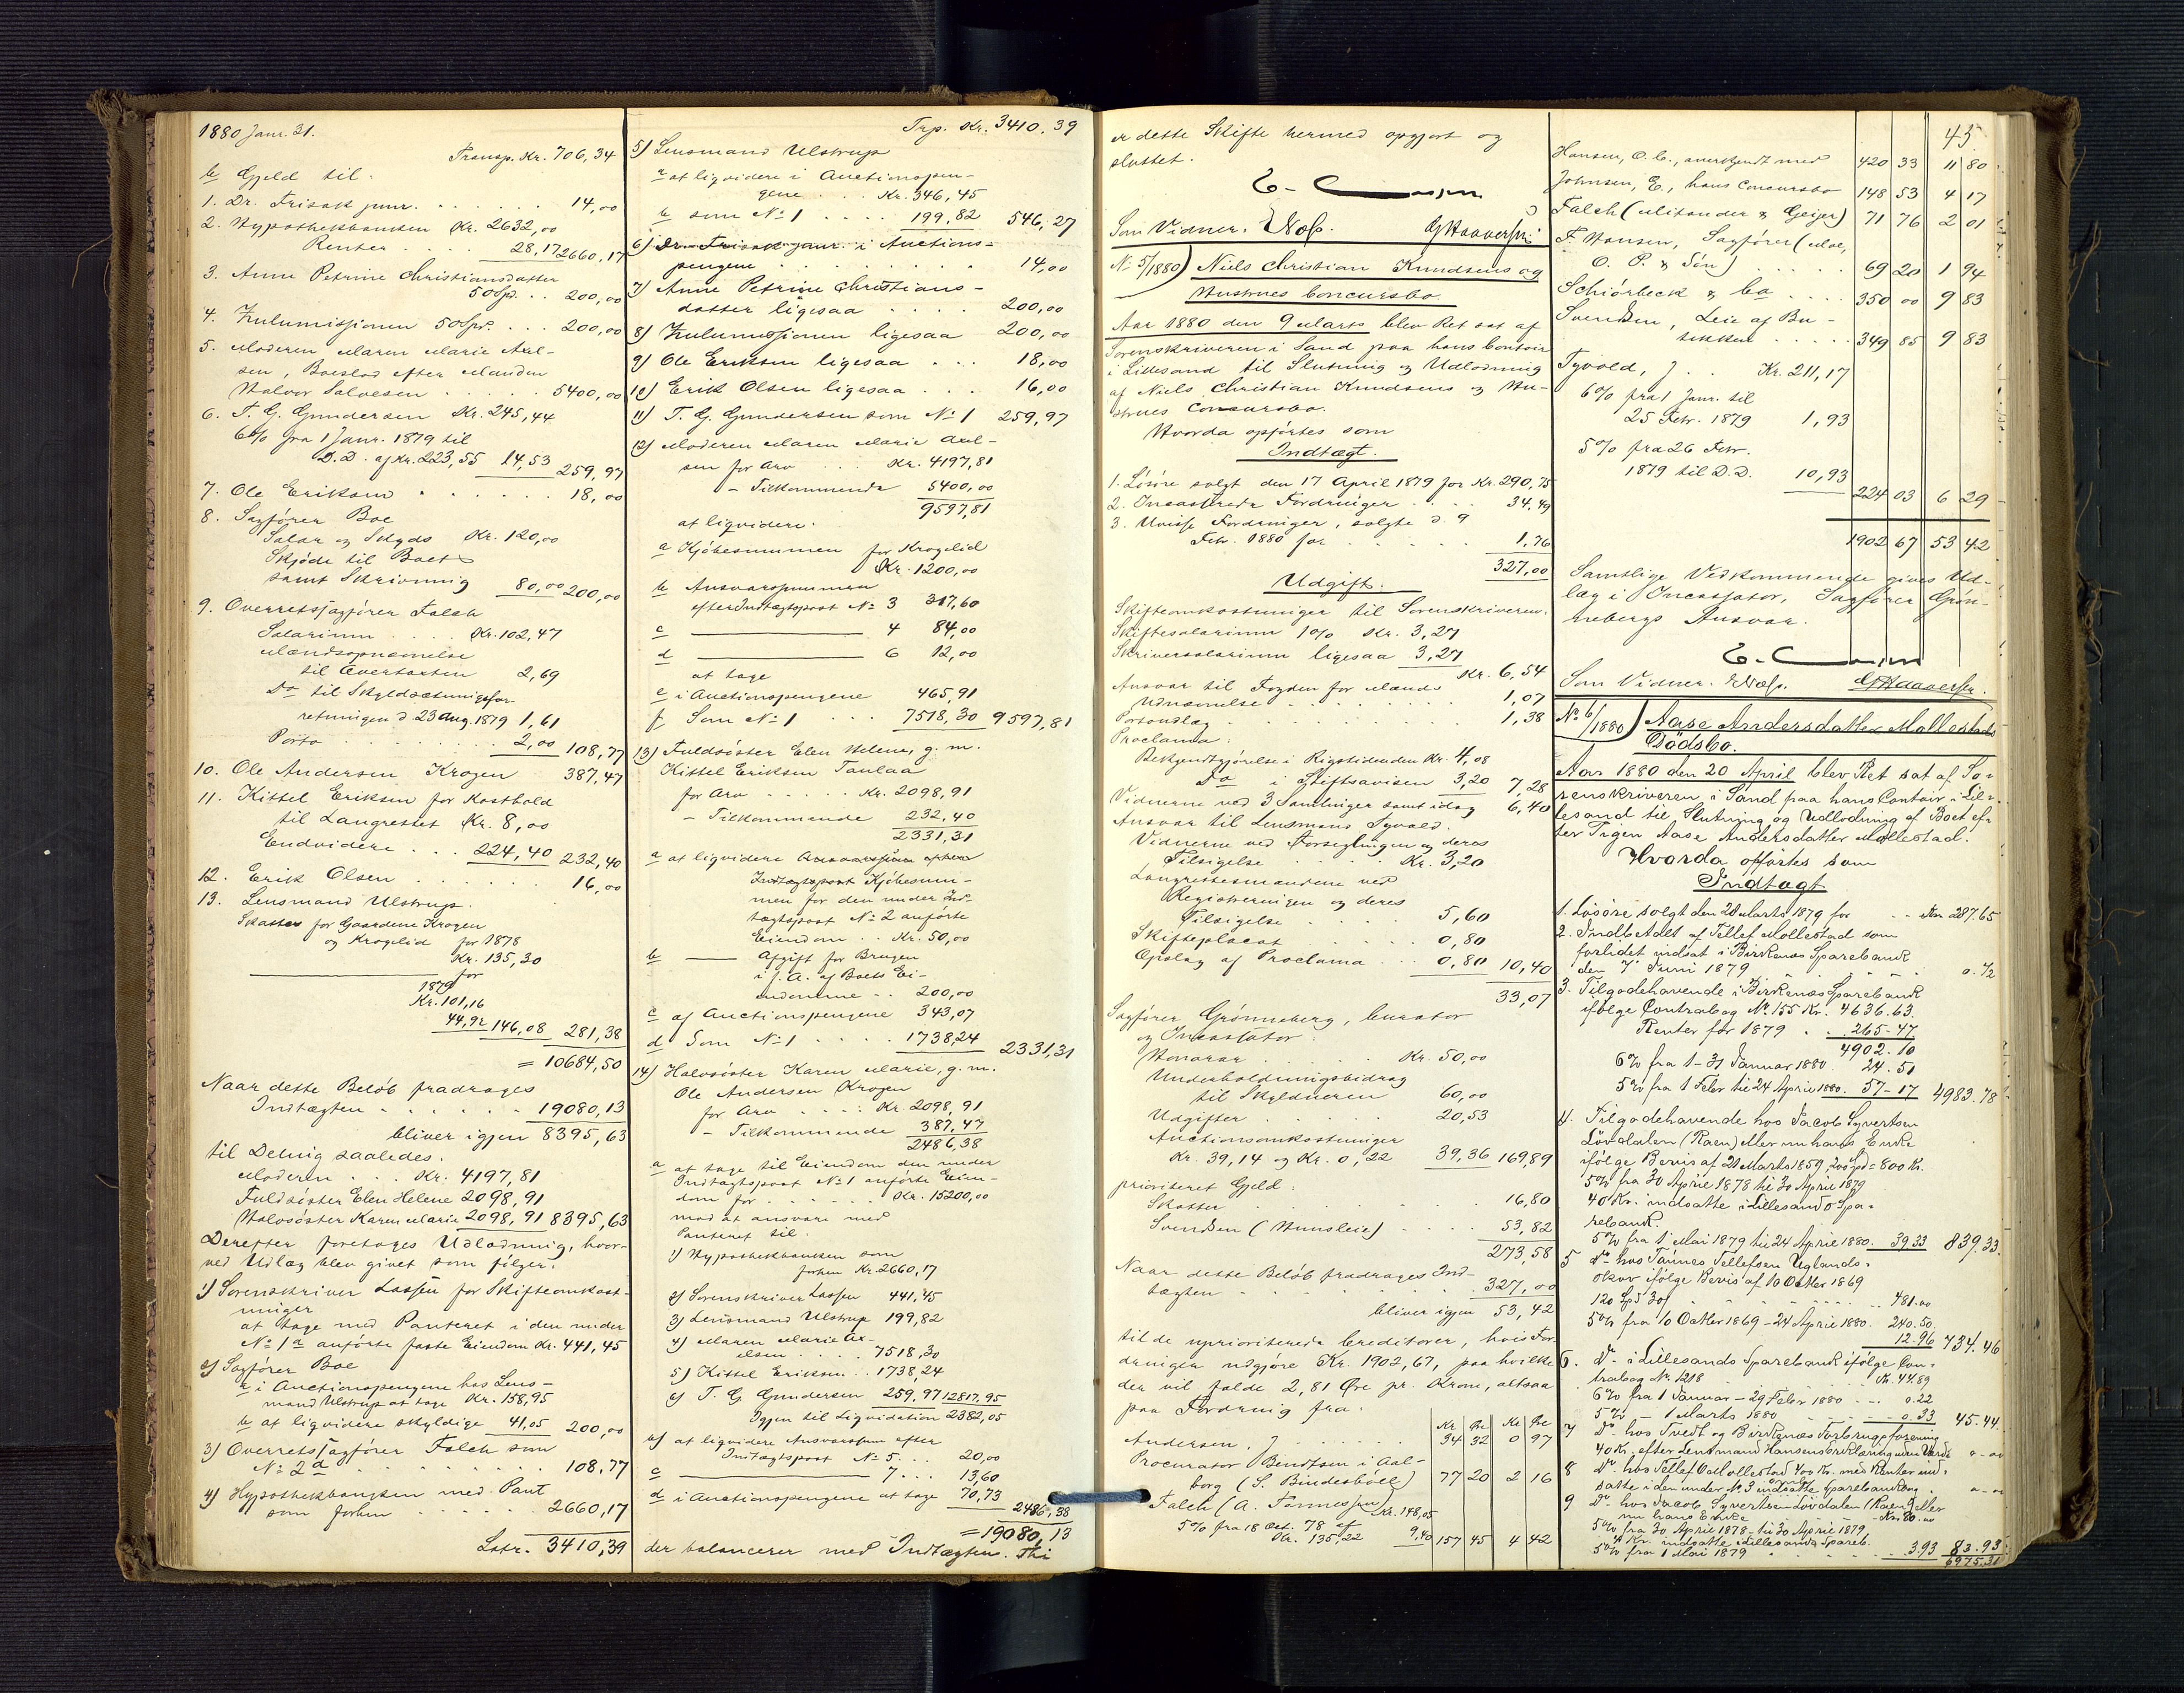 1880 Janr. 31.
Transp. Kr. 706,34
b Gjeld til:
1. Dr. Frisak junr. . . . 14,00
2. Hypothekbanken Kr. 2632,00
Renter . . 28,17 2660,17
3. Anne Petrine Christiansdatter
50 Sp. . . 200,00
4. Zulumissionen 50 Spr. . . . 200,00
5. Moderen Maren Marie Axel-
sen, Boeslod efter Manden
Halvor Salvesen . . . 5400,00
6. T. G. Gundersen Kr. 245,44
6% fra 1 Janr. 1879 til
D.D. af Kr. 223,55 14,53 259,97
7. Ole Eriksen . . . 18,00
8. Sagfører Boe
Salar og Skyds Kr. 120,00
Skjøde til Boet
samt Skrivning 80,00 200,00
9. Overretssagfører Falch
Salarium . . . Kr. 102,47
Mændsopnævnelse
til Overtaxten 2,69
Do til Skyldsætningsfor-
retningen d. 23 Aug. 1879 1,61
Porto . . . 2,00 108,77
10. Ole Andersen Krogen 387,47
11. Kittel Eriksen for Kosthold
til Langrettet Kr. 8,00
Endvidere . . . 224,40 232,40
12. Erik Olsen . . . 16,00
13. Lensmand Ulstrup.
Skatter for Gaardene Krogen
og Krogelid for 1878
Kr. 135,30
for
1879
Kr. 101,16
44,92 146,08 281,38
= 10684,50
Naar dette Beløb fradrages
Indtægten . . . 19080,13
bliver igjen 8395,63
til Deling saaledes:
Moderen . . . Kr. 4197,81
Fuldsøster Elen Helene 2098,91
Halvsøster Karen Marie 2098,91 8395,63
Derefter foretages Udlodning, hvor-
ved Udlæg blev givet som følger:
1) Sorenskriver Lassen for Skifteomkost-
ninger
at tage med Panteret i den under
No 1 a anførte faste Eiendom Kr. 441,45
2) Sagfører Boe
a i Auctionspengene hos Lens-
mand Ulstrup at tage Kr. 158,95
b at liqvidere skyldige 41,05 200,00
3) Overretssagfører Falch som
No 2 a . . . 108,77
4) Hypothekbanken med Pant
som forhen . . . 2660,17
Latr. 3410,39
Trp. Kr. 3410,39
5) Lensmand Ulstrup
a at liqvidere i Auctionspen-
gene . . . Kr. 346,45
b som No 1 . . . 199,82 546,27
6) Dr. Frisak junr. i Auctions-
pengene . . . 14,00
7) Anne Petrine Christians-
datter ligesaa . . . 200,00
8) Zulumissionen ligesaa 200,00
9) Ole Eriksen ligesaa . . . 18,00
10) Erik Olsen ligesaa . . . 16,00
11) T. G. Gundersen som No 1 259,97
12) Moderen Maren Marie Axel-
sen for Arv . . . Kr. 4197,81
- Tilkommende 5400,00
9597,81
at liqvidere.
a Kjøbesummen for Krogelid
Kr. 1200,00
b Ansvarssummen
efter Indtægtspost No 3 317,60
c 4 84,00
d 6 12,00
at tage
e i Auctionspengene 465,91
f Som No 1 . . . 7518,30 9597,81
13) Fuldsøster Elen Helene, g. m.
Kittel Eriksen Tanlaa
for Arv . . . Kr. 2098,91
- Tilkommende 232,40
2331,31
a at liqvidere
Indtægtspost Kjøbesum-
men for den under Ind-
tægtspost No 2 anførte
Eiendom . . Kr. 50,00
b Afgift for Brugen
i f. A. af Boets Ei-
endomme . . 200,00
c af Auctionspengene 343,07
d Som No 1 . . . 1738,24 2331,31
14) Halvsøster Karen Marie, g. m.
Ole Andersen Krogen
for Arv . . . Kr. 2098,91
- Tilkommende 387,47
2486,38
a at tage til Eiendom den under
Indtægtspost No 1 anførte Eien-
dom for . . . Kr. 15200,00
mod at ansvare med
Panteret til:
1) Hypothekbanken som
forhen Kr. 2660,17
2) Sorenskriver Lassen 441,45
3) Lensmand Ulstrup 199,82
4) Maren Marie Ax-
elsen . . . 7518,30
5) Kittel Eriksen . . 1738,24
6) T. G. Gundersen 259,97 12817,95
Igjen til Liqvidation 2382,05
b) at liqvidere Ansvarssum efter
Indtægtspost No 5 . . . 20,00
c 7 . . . 13,60
d i Auctionspengene at tage 70,73
2486,38
= 19080,13
der balancerer med Indtægten. Thi
45.
er dette Skifte hermed opgjort og
sluttet.
Som Vidner. Næss. G Haaversen
No 5/1880) Niels Christian Knudsens og
Hustrues Concursbo.
Aar 1880 den 9 Marts blev Ret sat af
Sorenskriveren i Sand paa hans Contoir
i Lillesand til Slutning og Udlodning
af Niels Christian Knudsens og Hu-
strues Concursbo.
Hvorda opførtes som
Indtægt.
1. Løsøre solgt den 17 April 1879 for Kr. 290,75
2. Incasserede Fordringer . . . 34,49
3. Uvisse Fordringer, solgte d. 9
Febr. 1880 for . . . 1,76
327,00
Udgift.
Skifteomkostninger til Sorenskriveren:
Skiftesalarium 1% Kr. 3,27
Skriversalarium ligesaa 3,27
Kr. 6,54
Ansvar til Fogden for Mænds
Udnævnelse . . . 1,07
Portoudlæg . . . 1,38
Proclama:
Bekjendtgjørelse i Rigstidenden Kr. 4,08
Do i Stiftsavisen 3,20 7,28
Vidnerne ved 3 Samlinger samt idag 6,40
Ansvar til Lensmand Tyvold.
Vidnerne ved Forseglingen og deres
Tilsigelse . . . Kr. 3,20
Langrettesmændene ved
Registreringen og deres
Tilsigelse . . . 5,60
Skifteplacat . . . 0,80
Opslag af Proclama . . . 0,80 10,40
33,07
Sagfører Grønneberg, Curator
og Incassator:
Honorar . . . Kr. 50,00
Underholdningsbidrag
til Skyldneren 60,00
Udgifter . . . 20,53
Auctionsomkostninger
Kr. 39,14 og Kr. 0,22 39,36 169,89
prioriteret Gjeld:
Skatter . . . 16,80
Svendsen (Huusleie) . . . 53,82
273,58
Naar dette Beløb fradrages Ind-
tægten . . . 327,00
bliver igjen 53,42
til de uprioriterede Creditorer, hvis For-
dringer udgjøre Kr. 1902,67, paa hvilke
der vil falde 2,81 Øre pr. Krone, altsaa
paa Fordring fra:
Kr Øre Kr Øre
Andersen, J . . . 34 32 0 97
Procurator Bendtsen i Aal-
borg (S. Bindesbøll) 77 20 2 16
Falch (A. Tønnessen) Kr. 148,05
5% fra 18 Oct. 78 af
Kr. 135,22 9,40 157 45 4 42
Hansen, O. C., anerkjendt med 420 33 11 80
Johnsen, E., hans Concursbo 148 53 4 17
Falch (Militander & Geijer) 71 76 2 01
F. Hansen, Sagfører (Moe,
O. P. & Søn) . . . 69 20 1 94
Schiørbeck & Co . . . 350 00 9 83
Svendsen, Leie af Bu-
tikken . . . 349 85 9 83
Tyvold, J . . Kr. 211,17
6% fra 1 Janr. til
25 Febr. 1879 1,93
5% fra 26 Febr.
1879 til D.D. 10,93
224 03 6 29
1902 67 53 42
Samtlige Vedkommende gives Ud-
læg i Incassator, Sagfører Grøn-
nebergs Ansvar.
Som Vidner. Næss. G Haaversen.
No 6/1880) Aase Andersdatter Mollestads
Dødsbo.
Aar 1880 den 20 April blev Ret sat af So-
renskriveren i Sand paa hans Contoir i Lil-
lesand til Slutning og Udlodning af Boet ef-
ter Pigen Aase Andersdatter Mollestad.
Hvorda opførtes som
Indtægt
1. Løsøre solgt den 20 Marts 1879 for . . Kr. 287.65
2. Indbetalt af Tellef Mollestad som
forlidet indsat i Birkenæs Sparebank
den 7 Juni 1879 . . . 0.72
3. Tilgodehavende i Birkenæs Sparebank
ifølge Contrabog No 155 Kr. 4636.63.
Renter for 1879 . . . 265.47
4902.10
6% fra 1-31 Januar 1880 24.51
5% fra 1 Febr til 24 April 1880. 57-17 4983.78
4. Tilgodehavende hos Jacob Syvertsen
Løvdalen (Raen) eller nu hans Enke
ifølge Bevis af 20 Marts 1859, 200 Spd = 800 Kr.
5% fra 30 April 1878 til 30 April 1879
40 Kr. indsatte i Lillesands Spa-
rebank.
5% fra 1 Mai 1879 til 24 April 1880. 39.33 839.33.
5 Do hos Tønnes Tellefsen Uglands-
skov ifølge Bevis af 10 October 1869
120 Spd 30 . . . 481.00
5% fra 10 October 1869-24 April 1880. 240.50.
12.96 734.46
6. Do i Lillesands Sparebank ifølge Con-
trabog No 1218 Kr. 44.89
6% fra 1 Januar-29 Febr 1880 . . . 0.22
5% - 1 Marts 1880 . . . 0.33 45.44
7 Do hos Tvedt og Birkenæs Forbrugsforening
40 Kr. efter Lensmand Hansens Erklæring uden Værdi
8 Do hos Tellef O Mollestad 400 Kr. med Renter ind-
satte i den under No 3 indsatte Sparebankbog
9 Do hos Jacob Syvertsen Løvdalen (Raen) eller
nu hans Enke . . . Kr. 80.00
5% fra 30 April 1878 til 30 April 1879,
4 Kr. indsatte i Lillesands Spareb.
5% fra 1 Mai 1879 . . . 3.93 83.93
6975.31